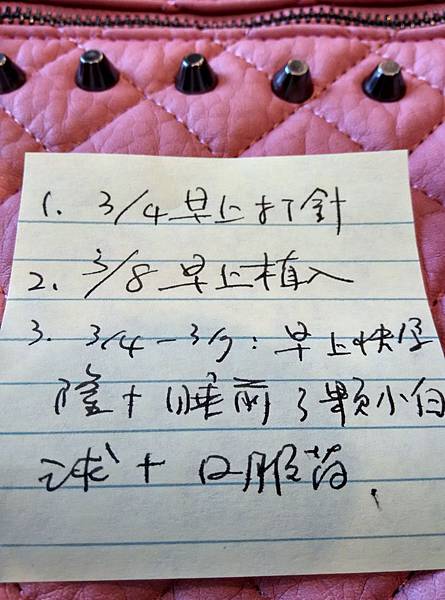 1. 3/4 早上打針
2. 3/8 早上植入
3. 3/4-3/9: 早上快孕
隆+睡前3顆小白
球+口服药.